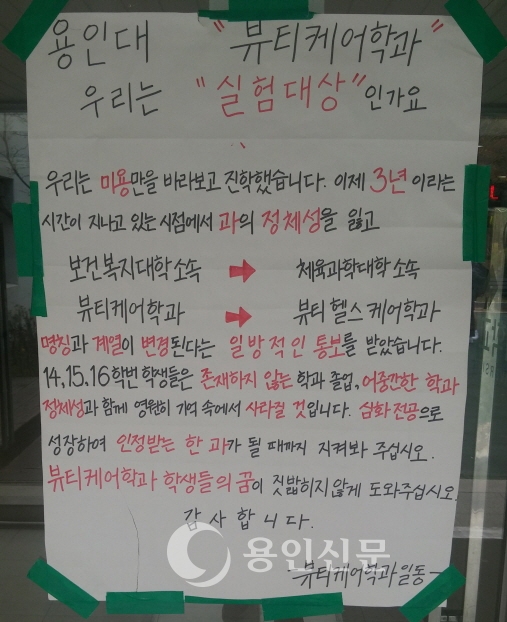 용인대 "뷰티케어학과"
우리는 "실험대상"인가요
우리는 미용만을 바라보고 진학했습니다. 이제 3년 이라는
시간이 지나고 있는 시점에서 과의 정체성을 잃고
보건복지대학소속 → 체육과학대학 소속
뷰티케어학과 → 뷰티 헬스 케어학과
명칭과 계열이 변경된다는 일방적인 통보를 받았습니다.
14,15,16학번 학생들은 존재하지 않는 학과 졸업, 어중간한 학과
정체성과 함께 영원히 기억 속에서 사라질 것입니다. 심화전공으로
성장하여 인정받는 한 과가 될 때까지 지켜봐 주십시오.
뷰티케어학과 학생들의 꿈이 짓밟히지않게 도와주십시오.
감사합니다.
용인신문
-뷰티케어학과일동-